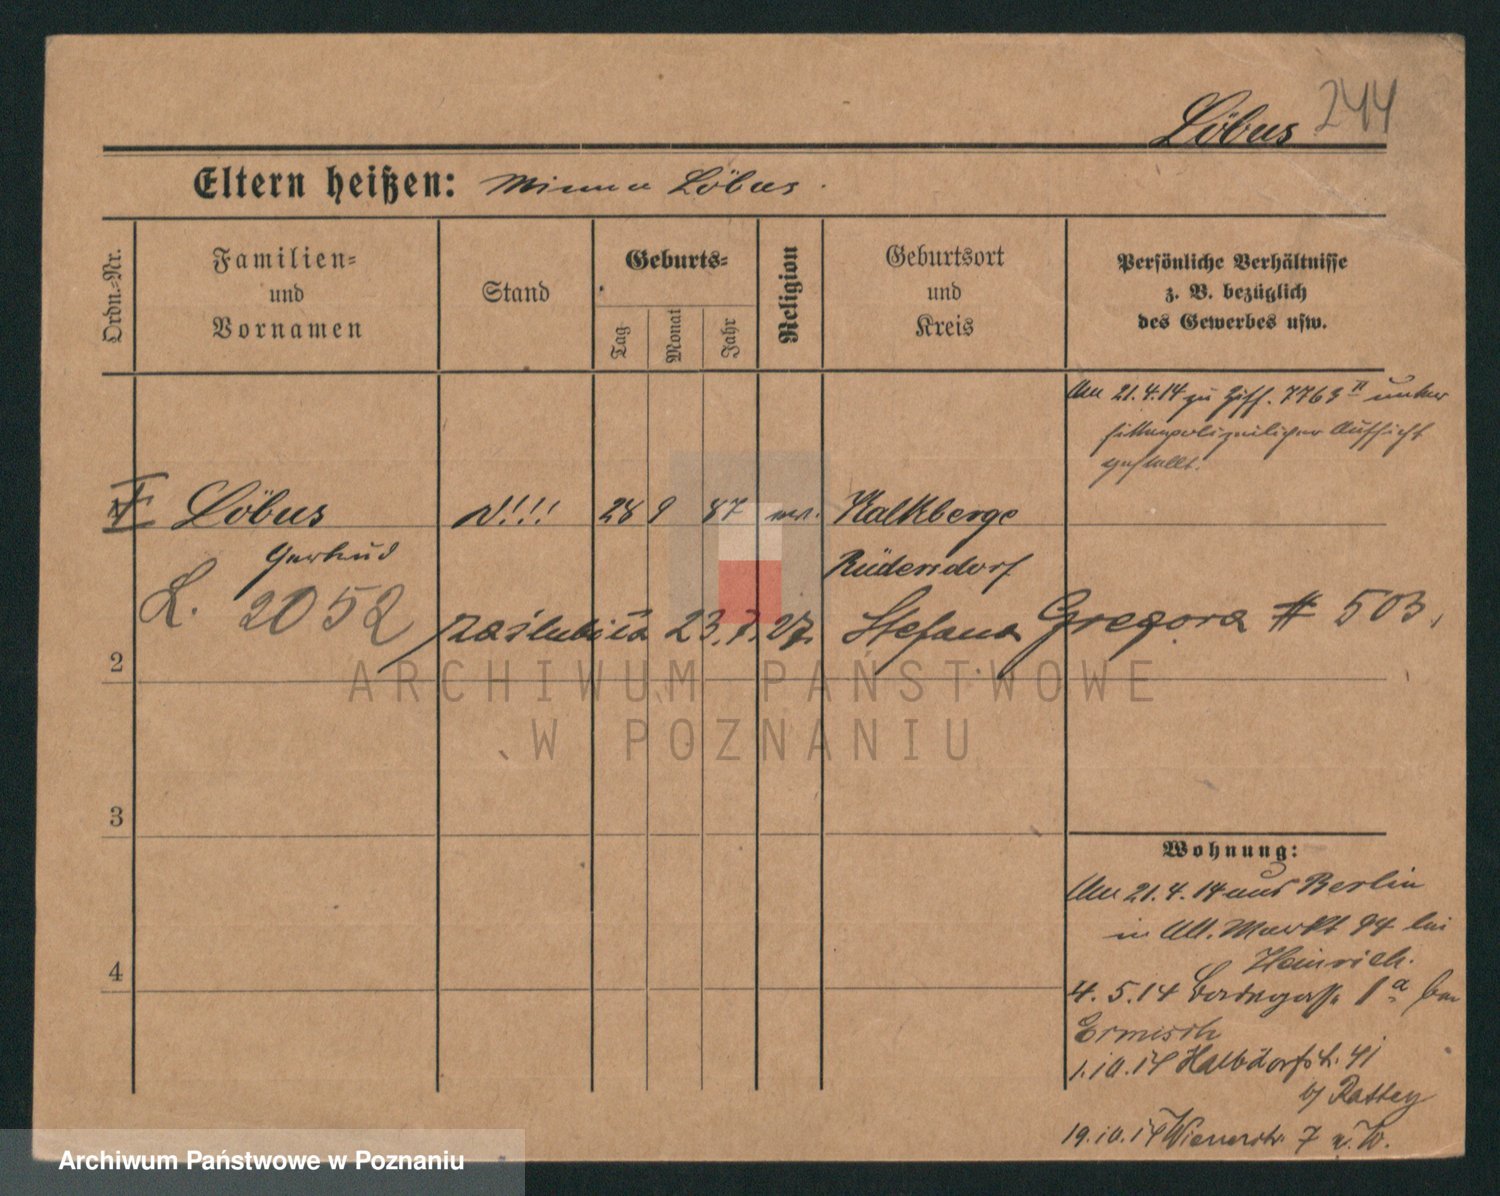 Löbus 244
Eltern heißen: Minna Löbus.
Ordn.=Nr.
Familien=
und
Vornamen
Stand
Geburts=
Tag
Monat
Jahr
Religion
Geburtsort
und
Kreis
Persönliche Verhältnisse
z. B. bezüglich
des Gewerbes usw.
Am 21.4.14 zu Ziff. 7763 II unter
sittenpolizeilicher Aufsicht
gestellt.
Löbus !!! 28 9 87 Kalkberge
Gertrud Rüdersdorf
L. 2052
zaślubiła 23.7.27. Stefana Gregora # 503.
2
3
4
ARCHIWUM PAŃSTWOWE
W POZNANIU
Wohnung:
Am 21.4.14 aus Berlin
in Alt. Markt 94 bei
Heinrich.
4.5.14 1a bei
Ermisch
1.10.14 Halbdorfstr. 41
b/ Rattey
19.10.14 Wienerstr. 7 b. W.
Archiwum Państwowe w Poznaniu